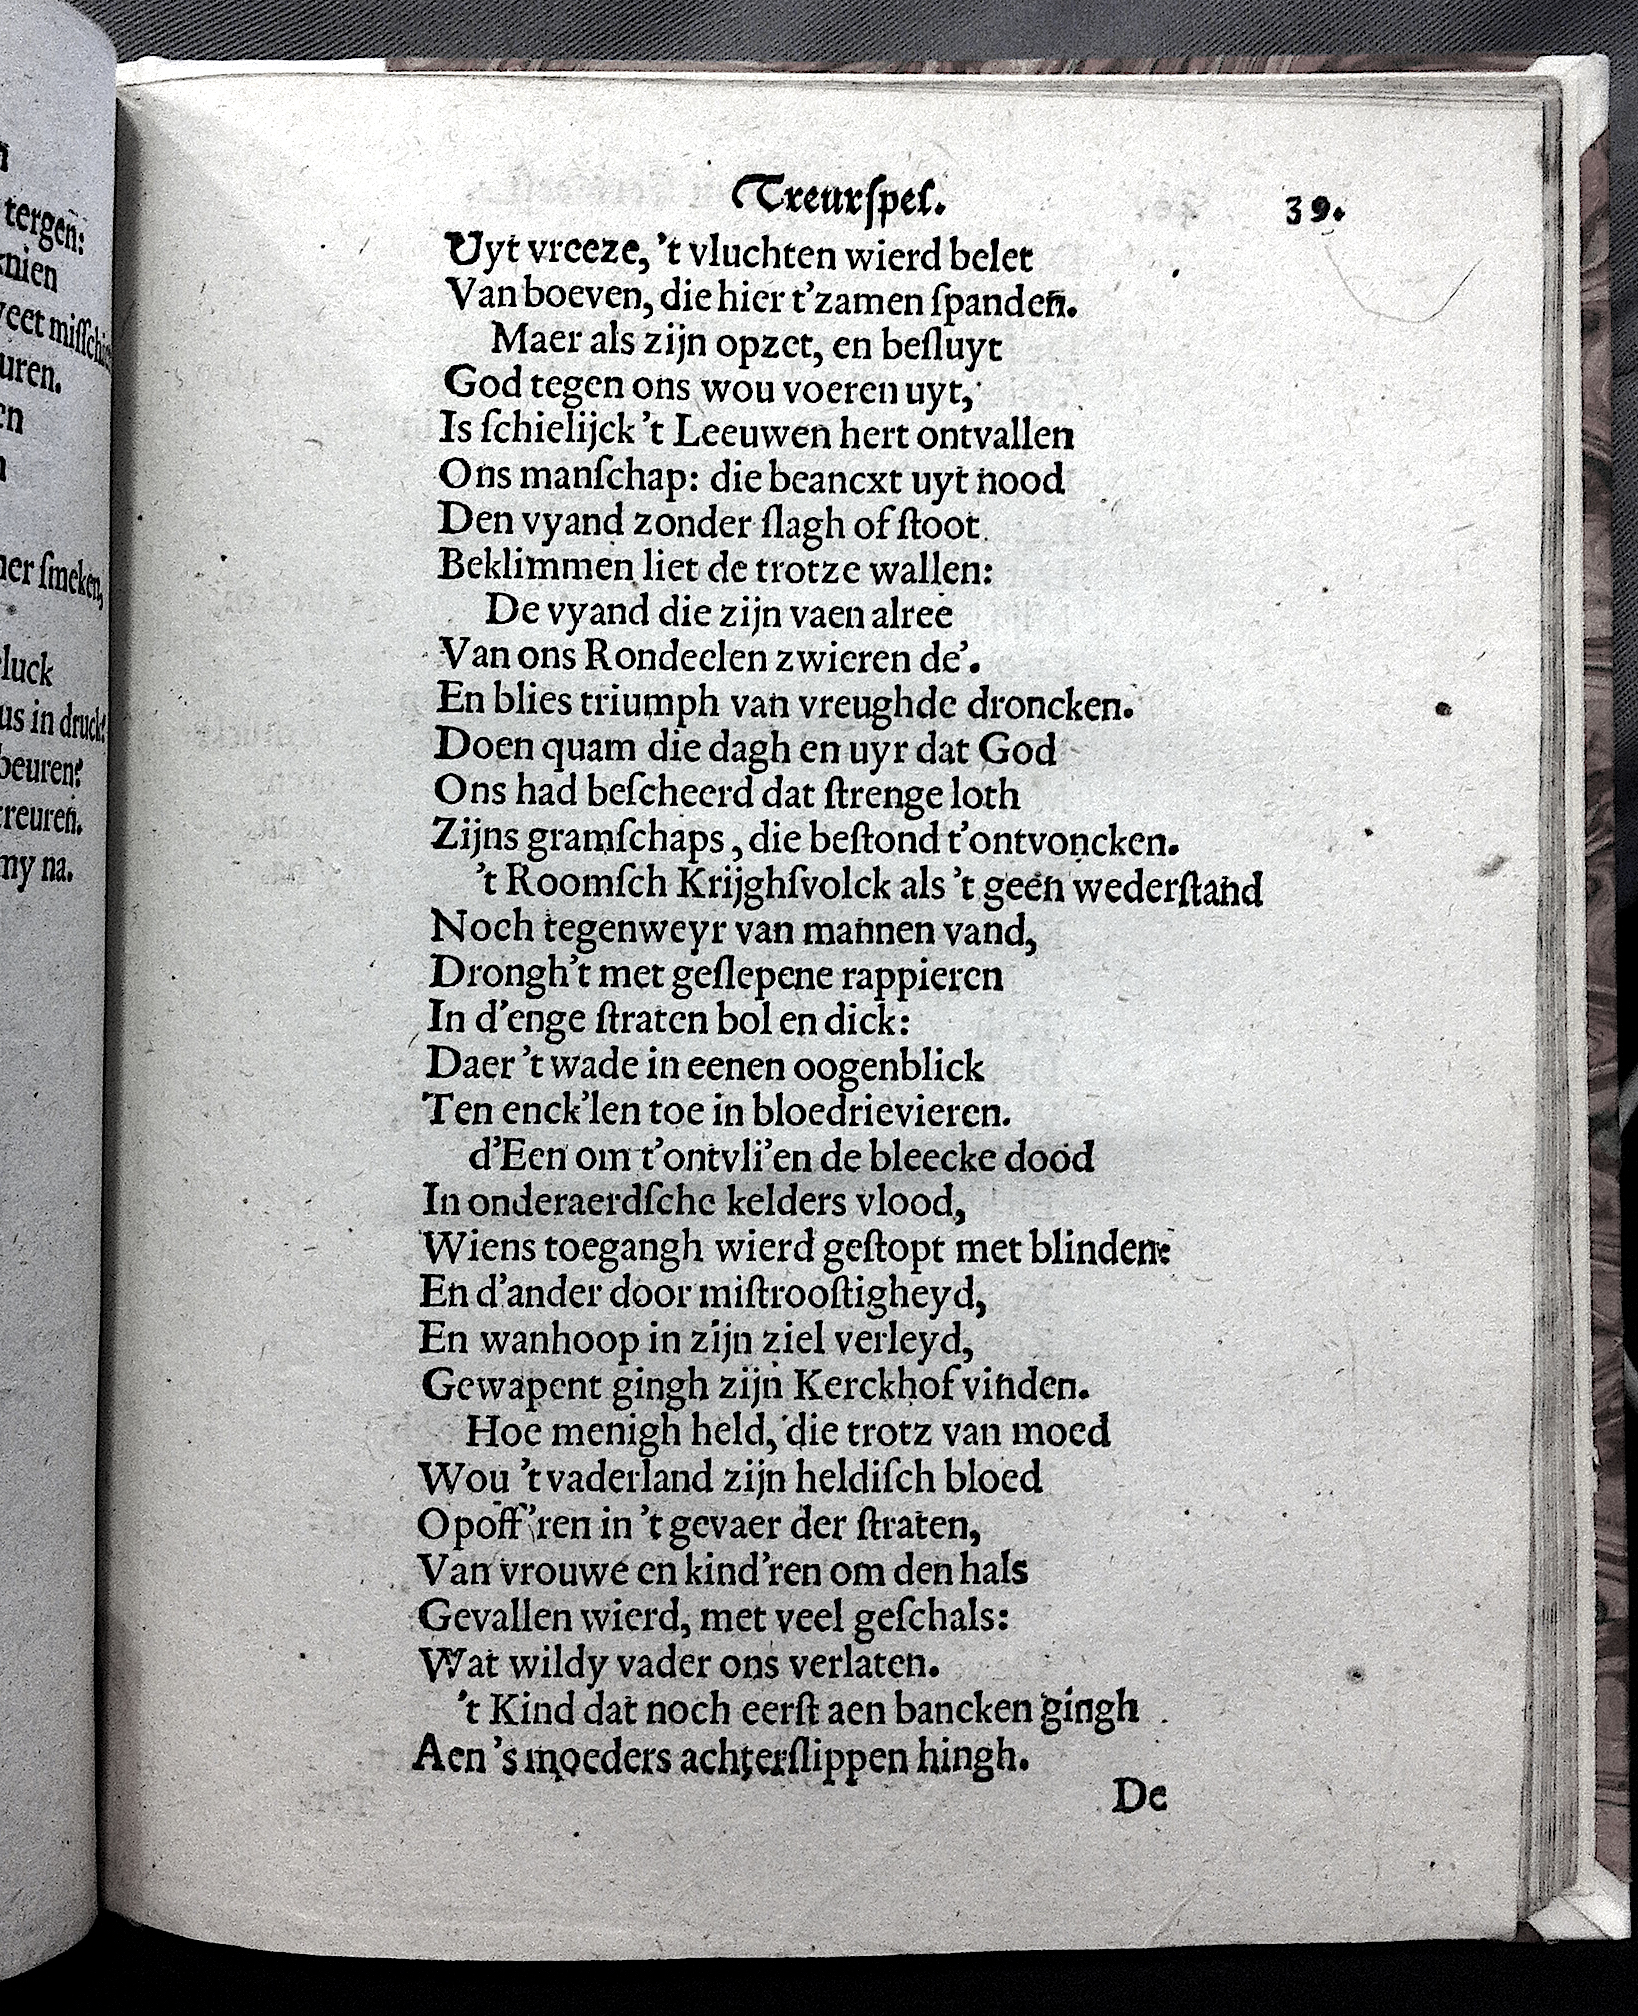 tergen:
knien
veet misſchi
uren.
en
ner ſmeken,
luck
us in druck?
beuren?
treuren.
my na.
Treurſpel. 39.
Uyt vreeze, 't vluchten wierd belet
Van boeven, die hier t'zamen ſpanden.
Maer als zijn opzet, en beſluyt
God tegen ons wou voeren uyt,
Is ſchielijck 't Leeuwen hert ontvallen
Ons manſchap: die beancxt uyt nood
Den vyand zonder ſlagh of ſtoot
Beklimmen liet de trotze wallen:
De vyand die zijn vaen alree
Van ons Rondeelen zwieren de'.
En blies triumph van vreughde droncken.
Doen quam die dagh en uyr dat God
Ons had beſcheerd dat ſtrenge loth
Zijns gramſchaps, die beſtond t'ontvoncken.
't Roomſch Krijghſvolck als 't geen wederſtand
Noch tegenweyr van mannen vand,
Drongh't met geſlepene rappieren
In d'enge ſtraten bol en dick:
Daer 't wade in eenen oogenblick
Ten enck'len toe in bloedrievieren.
d'Een om t'ontvli'en de bleecke dood
In onderaerdſche kelders vlood,
Wiens toegangh wierd geſtopt met blinden:
En d'ander door miſtrooſtigheyd,
En wanhoop in zijn ziel verleyd,
Gewapent gingh zijn Kerckhof vinden.
Hoe menigh held, die trotz van moed
Wou 't vaderland zijn heldiſch bloed
Opoff'ren in 't gevaer der ſtraten,
Van vrouwe en kind'ren om den hals
Gevallen wierd, met veel geſchals:
Wat wildy vader ons verlaten.
't Kind dat noch eerſt aen bancken gingh
Aen 's moeders achterſlippen hingh.
De